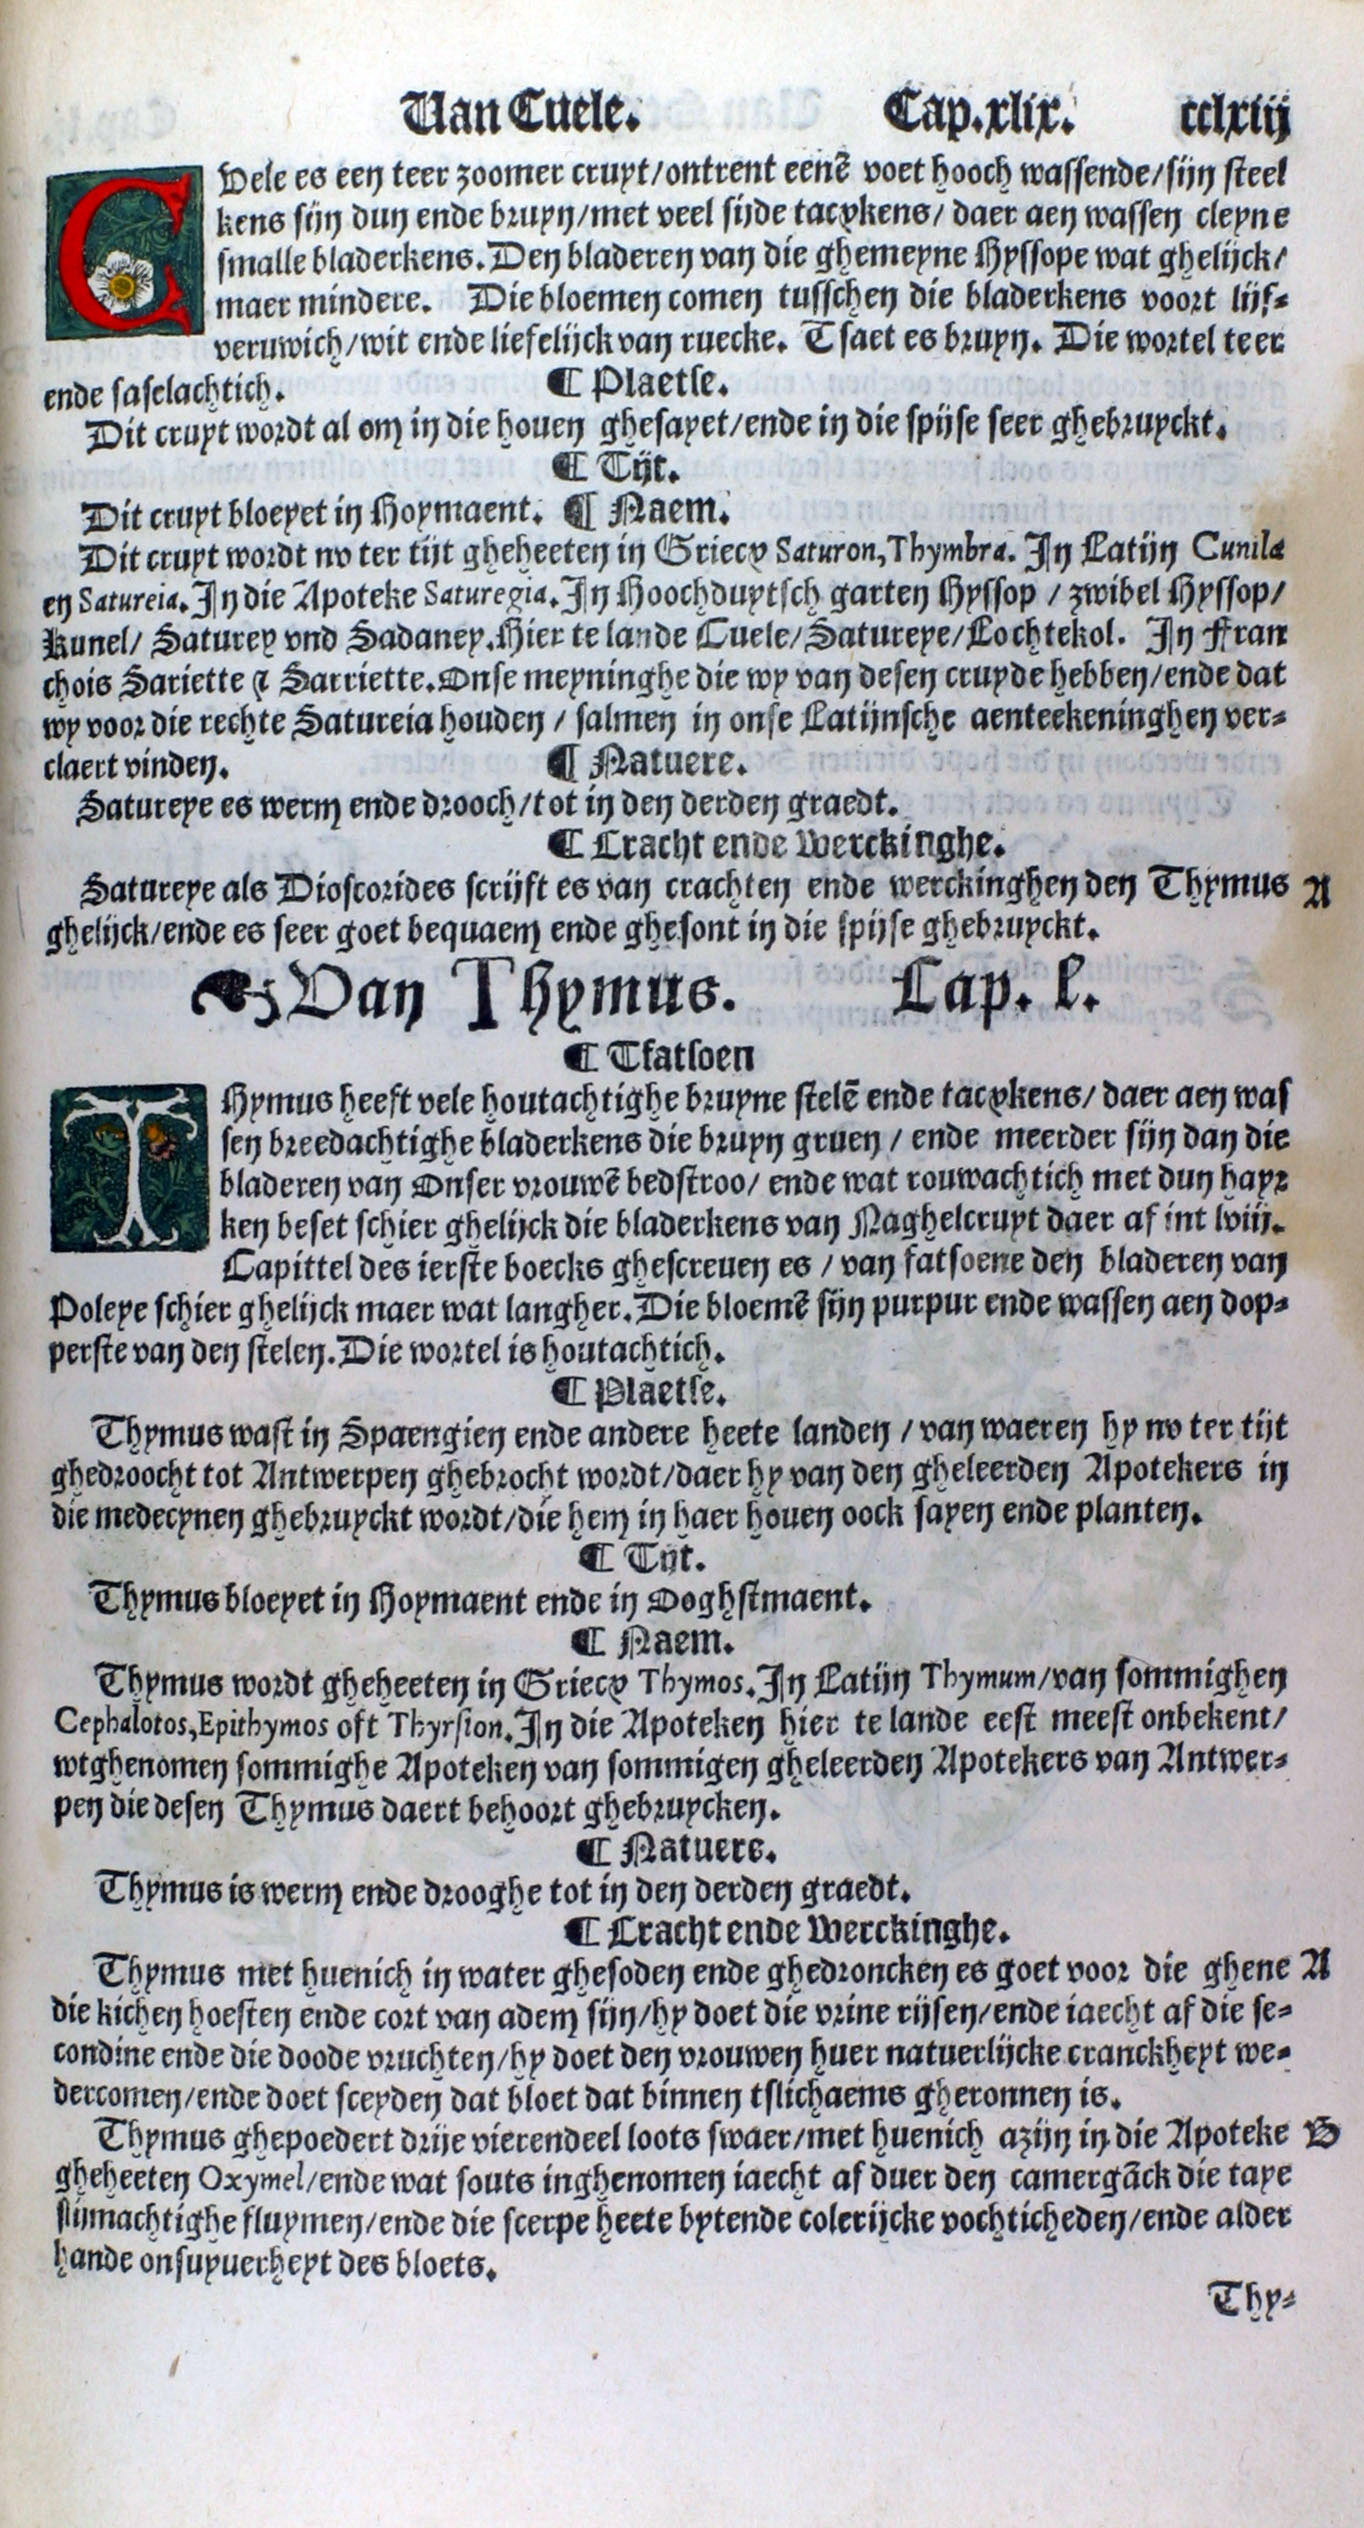 Van Cuele. Cap.xlix. cclxiij
CVele es een teer zoomer cruyt/ontrent eenē voet hooch wassende/sijn steel
kens sijn dun ende bruyn/met veel sijde tacxkens/ daer aen wassen cleyne
smalle bladerkens. Den bladeren van die ghemeyne Hyssope wat ghelijck/
maer mindere. Die bloemen comen tusschen die bladerkens voort lijf-
veruwich/wit ende liefelijck van ruecke. Tsaet es bruyn. Die wortel teer
ende faselachtich. ¶ Plaetse.
Dit cruyt wordt al om in die houen ghesayet/ende in die spijse seer ghebruyckt.
¶ Tijt.
Dit cruyt bloeyet in Hoymaent. ¶ Naem.
Dit cruyt wordt nv ter tijt gheheeten in Griecx Saturon, Thymbra. In Latijn Cunila
en Satureia. In die Apoteke Saturegia. In Hoochduytsch garten Hyssop / zwibel Hyssop/
Kunel/ Saturey vnd Sadaney. Hier te lande Cuele/Satureye/Lochtekol. In Fran
chois Sariette ⁊ Sarriette. Onse meyninghe die wy van desen cruyde hebben/ende dat
wy voor die rechte Satureia houden / salmen in onse Latijnsche aenteekeninghen ver-
claert vinden. ¶ Natuere.
Satureye es werm ende drooch/tot in den derden graedt.
¶ Cracht ende Werckinghe.
Satureye als Dioscorides scrijft es van crachten ende werckinghen den Thymus A
ghelijck/ende es seer goet bequaem ende ghesont in die spijse ghebruyckt.
Van Thymus. Cap. l.
¶ Tfatsoen
THymus heeft vele houtachtighe bruyne stelē ende tacxkens/ daer aen was
sen breedachtighe bladerkens die bruyn gruen / ende meerder sijn dan die
bladeren van Onser vrouwē bedstroo/ ende wat rouwachtich met dun hayr
ken beset schier ghelijck die bladerkens van Naghelcruyt daer af int lviij.
Capittel des ierste boecks ghescreuen es / van fatsoene den bladeren van
Poleye schier ghelijck maer wat langher. Die bloemē sijn purpur ende wassen aen dop-
perste van den stelen. Die wortel is houtachtich.
¶ Plaetse.
Thymus wast in Spaengien ende andere heete landen / van waeren hy nv ter tijt
ghedroocht tot Antwerpen ghebrocht wordt/daer hy van den gheleerden Apotekers in
die medecynen ghebruyckt wordt/die hem in haer houen oock sayen ende planten.
¶ Tijt.
Thymus bloeyet in Hoymaent ende in Ooghstmaent.
¶ Naem.
Thymus wordt gheheeten in Griecx Thymos. In Latijn Thymum/van sommighen
Cephalotos, Epithymos oft Thyrsion. In die Apoteken hier te lande eest meest onbekent/
wtghenomen sommighe Apoteken van sommigen gheleerden Apotekers van Antwer-
pen die desen Thymus daert behoort ghebruycken.
¶ Natuere.
Thymus is werm ende drooghe tot in den derden graedt.
¶ Cracht ende Werckinghe.
Thymus met huenich in water ghesoden ende ghedroncken es goet voor die ghene A
die kichen hoesten ende cort van adem sijn/hy doet die vrine rijsen/ende iaecht af die se-
condine ende die doode vruchten/hy doet den vrouwen huer natuerlijcke cranckheyt we-
dercomen/ende doet sceyden dat bloet dat binnen tslichaems gheronnen is.
Thymus ghepoedert drije vierendeel loots swaer/met huenich azijn in die Apoteke B
gheheeten Oxymel/ende wat souts inghenomen iaecht af duer den camergāck die taye
slijmachtighe fluymen/ende die scerpe heete bytende colerijcke vochticheden/ende alder
hande onsuyuerheyt des bloets.
Thy-